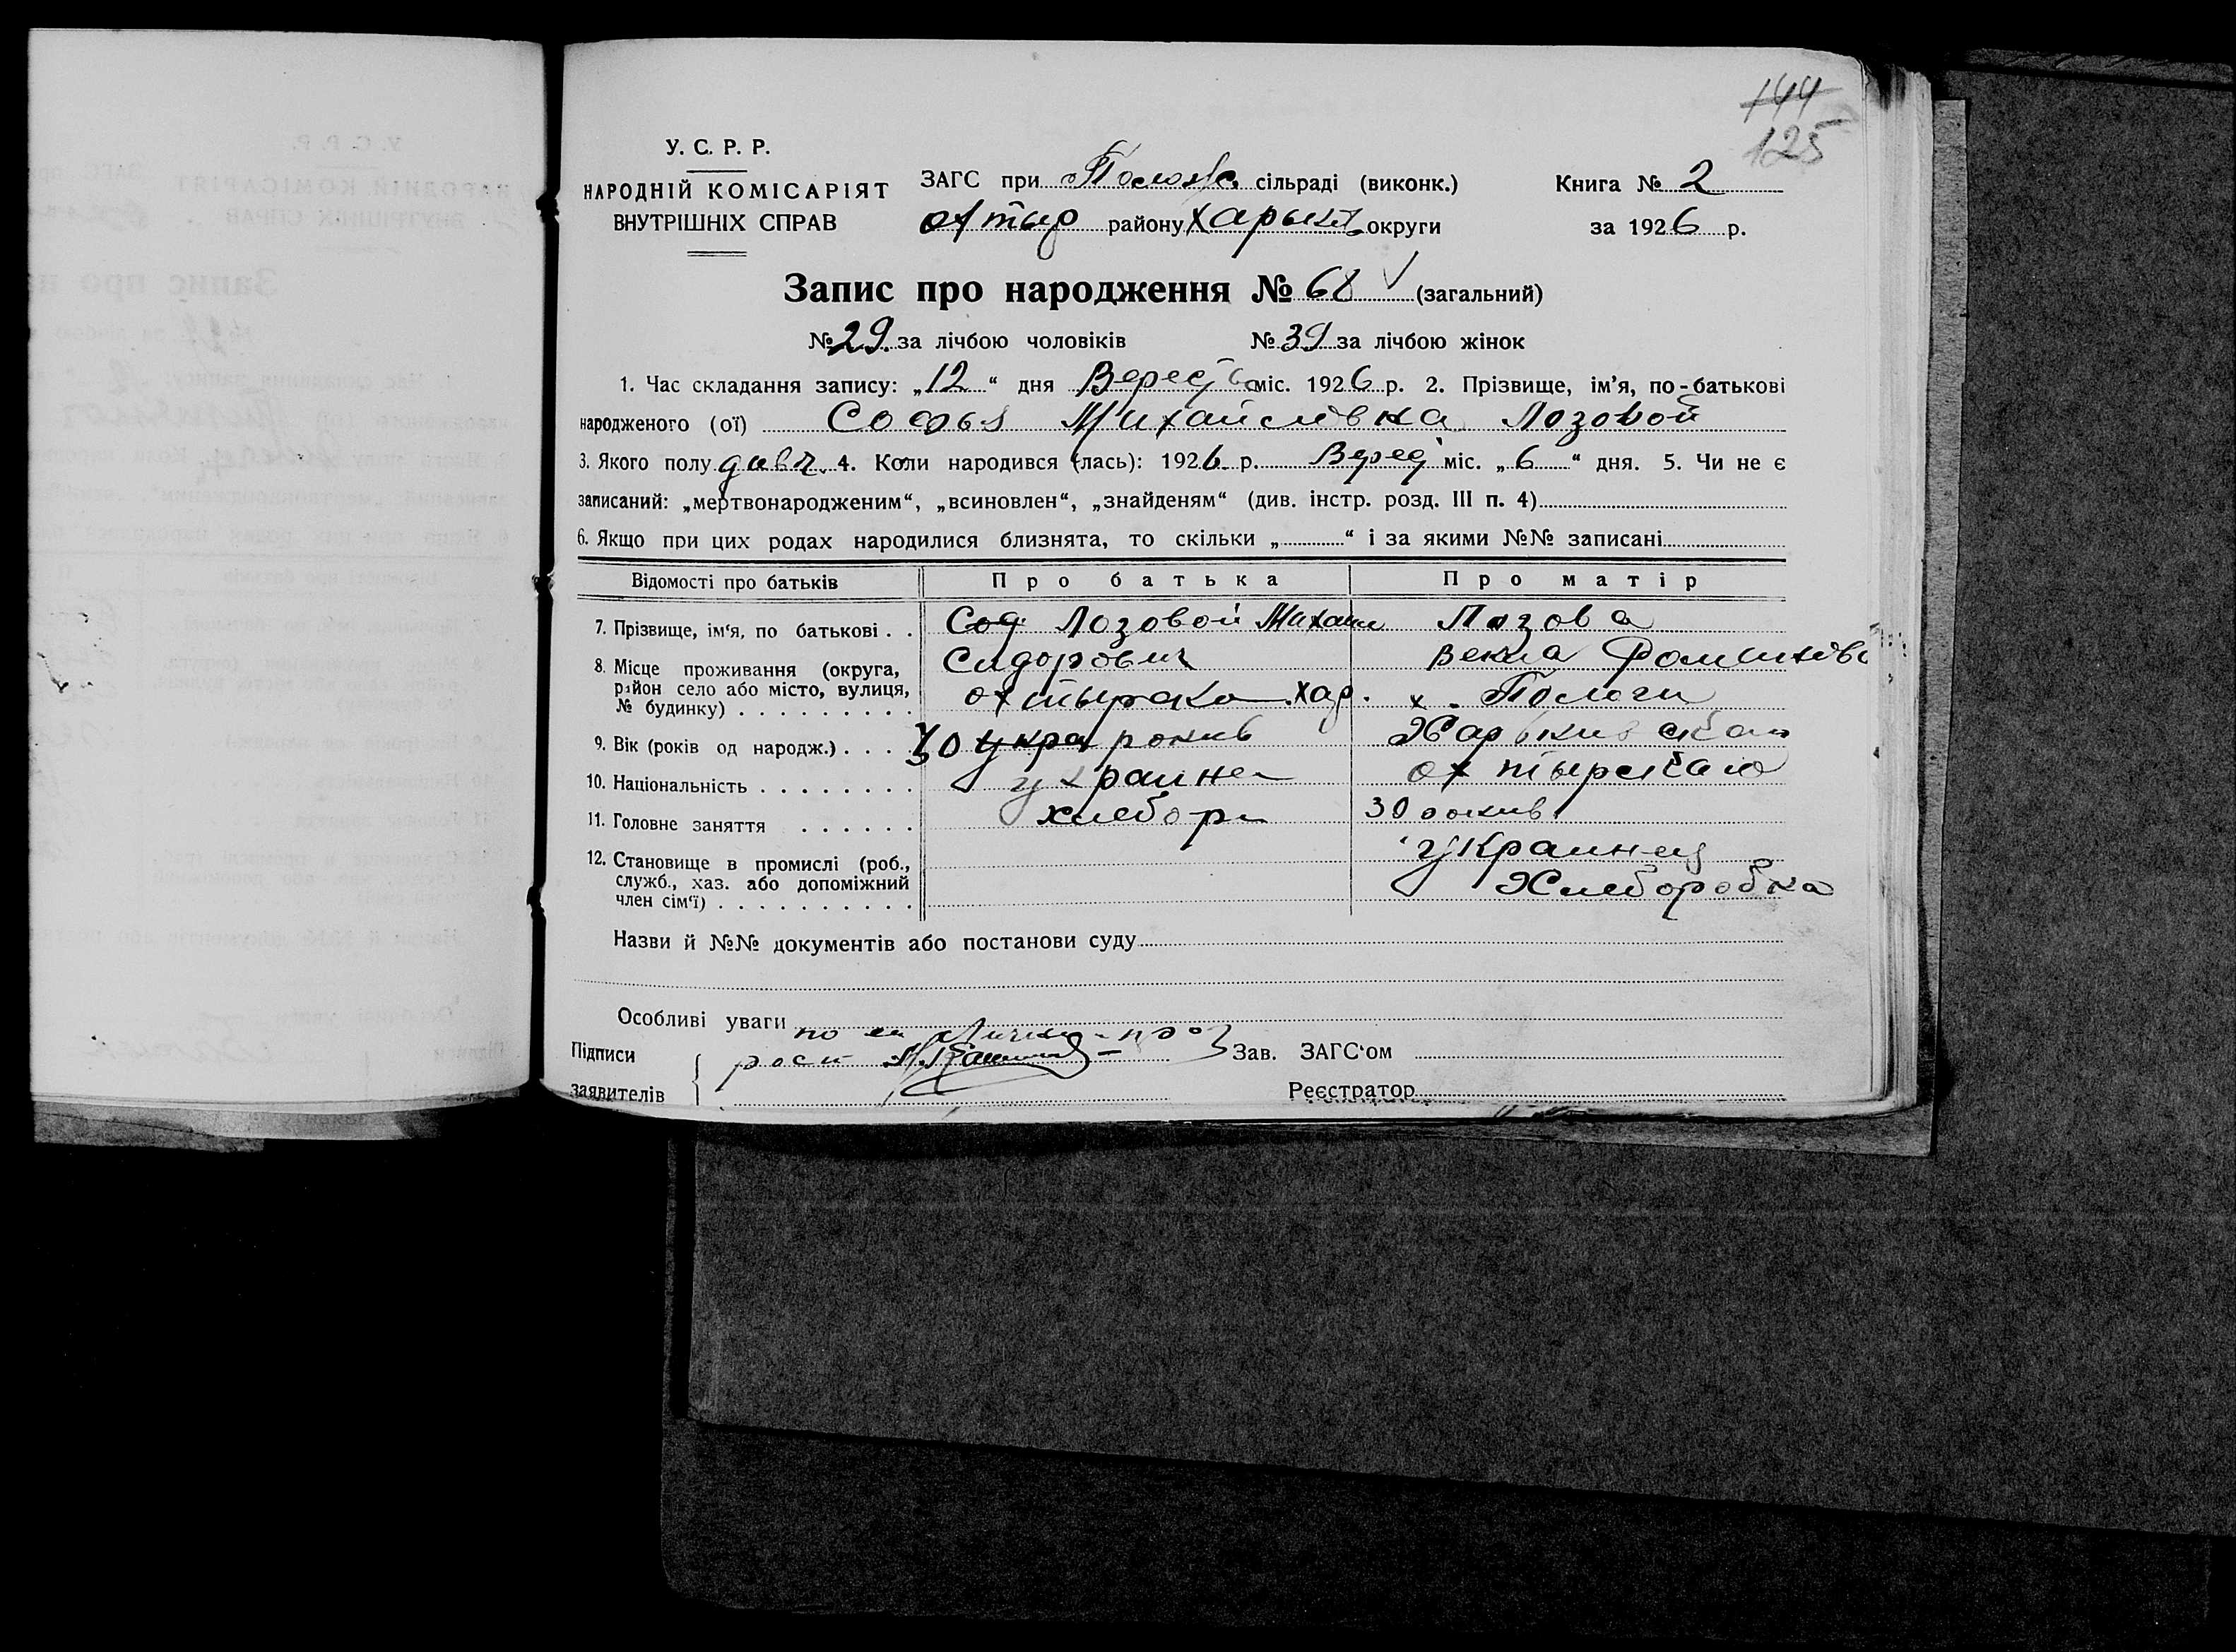 144
125
У. С. Р. Р.
НАРОДНІЙ КОМІСАРІЯТ
ВНУТРІШНІХ СПРАВ
ЗАГС при Положс. сільраді (виконк.)
охтыр району Харькив округи
Книга № 2
за 1926 р.
Запис про народження № 68 (загальний)
№ 29 за лічбою чоловіків № 39 за лічбою жінок
1. Час складання запису: „12“ дня Верес міс. 1926 р. 2. Прізвище, ім'я, по-батькові
народженого (ої) Софья Михайлівна Лозовой
3. Якого полу дивч. 4. Коли народився (лась): 1926 р. Верес міс. „6“ дня. 5. Чи не є
записаний: „мертвонародженим“, „всиновлен“, „знайденям“ (див. інстр. розд. III п. 4)
6. Якщо при цих родах народилися близнята, то скільки „ “ і за якими №№ записані
Відомості про батьків Про батька Про матір
7. Прізвище, ім'я, по батькові . . Соф Лозовой Михаил Лозова
Сидорович Векла
8. Місце проживання (округа,
район село або місто, вулиця,
№ будинку) . . . . . . . . . хар. х. Пологи
9. Вік (років од народж.) . . . 30 укра рокив
10. Національність . . . . . . . . украине охтырскаго
11. Головне заняття . . . . . . хлебор 30 рокив
12. Становище в промислі (роб.,
служб., хаз. або допоміжний
член сім'ї) . . . . . . . . . .
украинец
Хлеборобка
Назви й №№ документів або постанови суду
Особливі уваги
Підписи
заявителів
Зав. ЗАГС'ом
Реєстратор